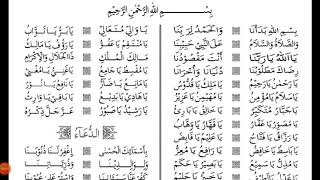 بِسْمِ اللهِ الرَّحْمٰنِ الرَّحِيْمِ
بِسْمِ اللهِ بَدَأْنَا وَالْحَمْدُ لِرَبِّنَا
وَالصَّلَاةُ وَالسَّلَامُ عَلَى النَّبِيِّ حَبِيْبِنَا
يَا اللهُ يَا رَبَّنَا أَنْتَ مَقْصُوْدُنَا
رِضَاكَ مَطْلُوْبُنَا دُنْيَانَا وَأُخْرَانَا
يَا رَحْمٰنُ يَا رَحِيْمُ يَا مَلِكُ يَا قُدُّوْسُ
يَا سَلَامُ يَا مُؤْمِنُ يَا مُهَيْمِنُ يَا عَزِيْزُ
يَا جَبَّارُ مُتَكَبِّرُ يَا خَالِقُ يَا بَارِئُ
يَا مُصَوِّرُ يَا غَفَّارُ يَا قَهَّارُ يَا وَهَّابُ
يَا رَزَّاقُ يَا فَتَّاحُ يَا عَلِيْمُ يَا قَابِضُ
يَا بَاسِطُ يَا خَافِضُ يَا رَافِعُ يَا مُعِزُّ
يَا مُذِلُّ يَا سَمِيْعُ يَا بَصِيْرُ يَا حَكَمُ
يَا وَالِيُ مُتَعَالِي يَا بَرُّ يَا تَوَّابُ
يَا مُنْتَقِمُ يَا عَفُوُّ يَا رَؤُوْفُ يَا مَالِكُ
مَالِكَ الْمُلْكِ ذَا الْجَلَالِ وَالْإِكْرَامِ
يَا مُقْسِطُ يَا جَامِعُ يَا غَنِيُّ يَا مُغْنِي
يَا مَانِعُ يَا ضَارُّ يَا نَافِعُ يَا نُوْرُ
يَا هَادِي يَا بَدِيْعُ يَا بَاقِي يَا وَارِثُ
يَا رَشِيْدُ يَا صَبُوْرُ عَزَّ جَلَّ ذِكْرُهُ
الدُّعَاءُ
بِأَسْمَائِكَ الْحُسْنَى إِغْفِرْ لَنَا ذُنُوْبَنَا
وَلِوَالِدِيْنَا وَذُرِّيَّاتِنَا
كَفِّرْ عَنْ سَيِّئَاتِنَا وَاسْتُرْ عَلَى عُيُوْبِنَا